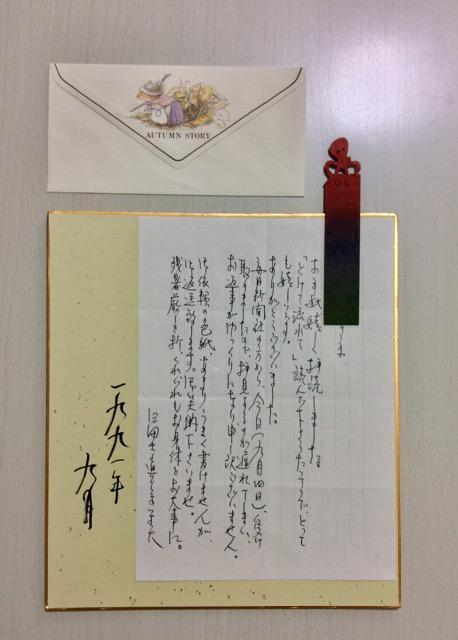 AUTUMN STORY
お手紙嬉しく拝読しました。
「とけて流れて」読んで下さったそうで、とって
も嬉しいです。
ありがとうございました。
毎日新聞社の方から、今日(九月四日)、受け
取りましたので、拝見するのが遅れてしまい、
お返事がゆっくりになり申し訳ございません。
御依頼の色紙、あまりうまく書けませんが、
御返送致します。御笑納下さいませ。
残暑厳しき折、くれぐれもお身体をお大事に。
一九九一年
九月